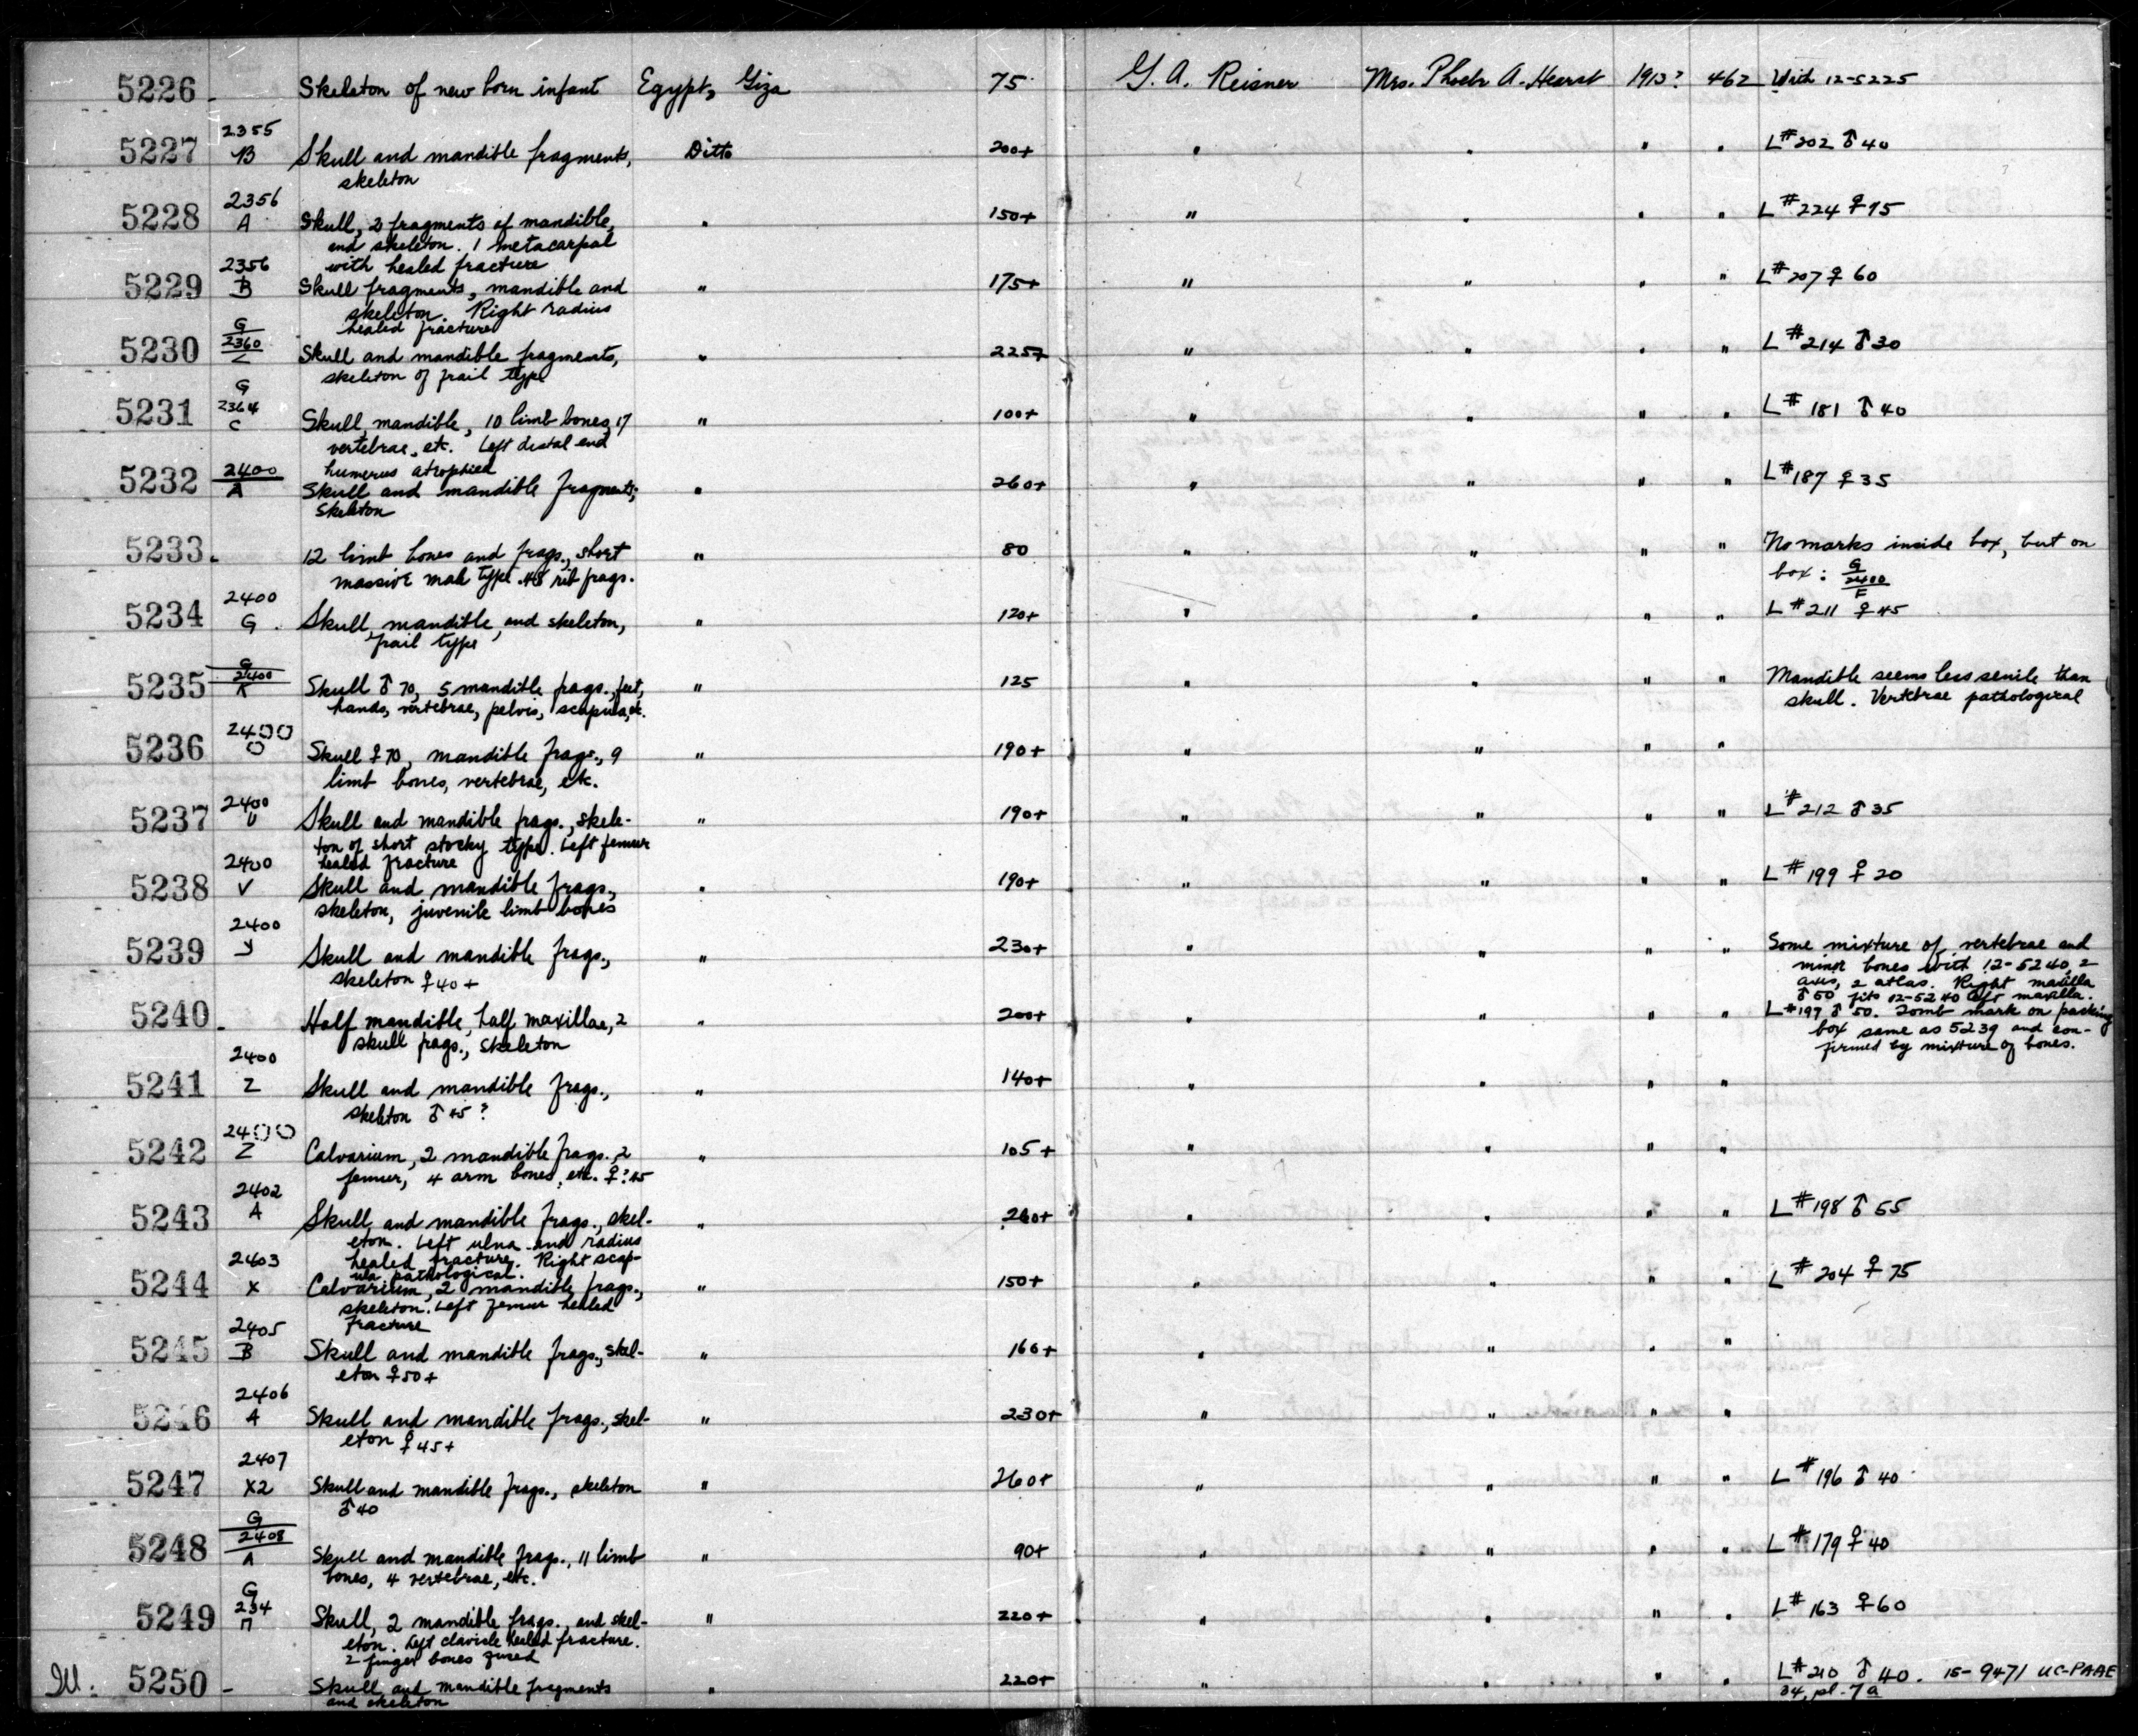 5226 - Skeleton of new born infant Egypt, Giza 75 G. A. Reisner Mrs. Phoebe A. Hearst 1913? 462 With 12-5225
2355
5227 B Skull and mandible fragments, Ditto 200+ " " " " L#202 ♂40
skeleton
2356
5228 A Skull, 2 fragments of mandible, " 150+ " " " " L#224 ♀75
and skeleton. 1 metacarpal
with healed fracture
2356
5229 B Skull fragments, mandible and " 175+ " " " " L#207 ♀60
skeleton. Right radius
healed fracture
G
2360
5230 Z Skull and mandible fragments, " 225+ " " " " L#214 ♂30
skeleton of frail type
G
2364
5231 C Skull, mandible, 10 limb bones, 17 " 100+ " " " " L#181 ♂40
vertebrae, etc. Left distal end
humerus atrophied
2400
5232 A Skull and mandible fragments; " 260+ " " " " L#187 ♀35
skeleton
5233 - 12 limb bones and frags., short " 80 " " " " No marks inside box, but on
massive male type. 48 rib frags. box: G
2400
F
2400
5234 G Skull, mandible, and skeleton, " 120+ " " " " L#211 ♀45
frail type
G
2400
5235 K Skull ♂70, 5 mandible frags., feet, " 125 " " " " Mandible seems less senile than
hands, vertebrae, pelvis, scapula, etc. skull. Vertebrae pathological
2400
5236 O Skull ♀70, mandible frags., 9 " 190+ " " " "
limb bones, vertebrae, etc.
2400
5237 U Skull and mandible frags., skele- " 190+ " " " " L#212 ♂35
ton of short stocky type. Left femur
healed fracture
2400
5238 V Skull and mandible frags., " 190+ " " " " L#199 ♀20
skeleton, juvenile limb bones
2400
5239 Y Skull and mandible frags., " 230+ " " " " Some mixture of vertebrae and
skeleton ♀40+ minor bones with 12-5240, 2
axis, 2 atlas. Right maxilla
♂50 fits 12-5240 left maxilla.
5240 - Half mandible, half maxillae, 2 " 200+ " " " " L#197 ♂50. Tomb mark on packing
skull frags., skeleton box same as 5239 and con-
firmed by mixture of bones.
2400
5241 Z Skull and mandible frags., " 140+ " " " "
skeleton ♂45?
2400
5242 Z Calvarium, 2 mandible frags., 2 " 105+ " " " "
femur, 4 arm bones, etc. ♀?45
2402
5243 A Skull and mandible frags., skel- " 240+ " " " " L#198 ♂55
eton. Left ulna and radius
healed fracture. Right scap-
ula pathological.
2403
5244 X Calvarium, 2 mandible frags., " 150+ " " " " L#204 ♀75
skeleton. Left femur healed
fracture
2405
5245 B Skull and mandible frags., skel- " 160+ " " " "
eton ♀50+
2406
5246 A Skull and mandible frags., skel- " 230+ " " " "
eton ♀45+
2407
5247 X2 Skull and mandible frags., skeleton " 260+ " " " " L#196 ♂40
♂40
G
2408
5248 A Skull and mandible frags., 11 limb " 90+ " " " " L#179 ♀40
bones, 4 vertebrae, etc.
G
234
5249 П Skull, 2 mandible frags., and skel- " 220+ " " " " L#163 ♀60
eton. Left clavicle healed fracture.
2 finger bones fused
Ill. 5250 - Skull and mandible fragments " 220+ " " " L#210 ♂40. 15-9471 UC-PAAE
and skeleton 34, pl. 7a